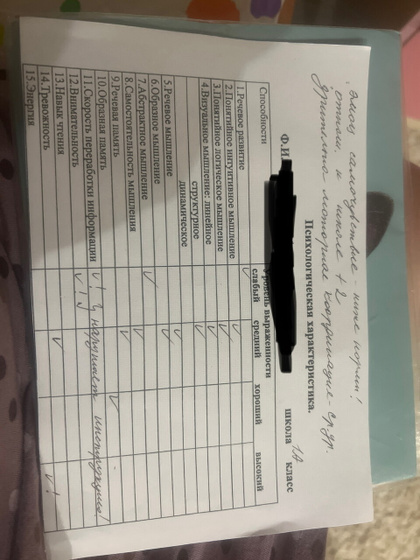 Эмоц самочувствие - ниже нормы!
отнош к школе + 2
зрительно моторная координация - ср. ур.
Психологическая характеристика.
Ф.И
школа 1А класс
Способности
уровень выраженности
слабый средний хороший высокий
1.Речевое развитие ✓
2.Понятийное интуитивное мышление ✓
3.Понятийное логическое мышление ✓
4.Визуальное мышление: линейное ✓
структурное ✓
динамическое ✓
5.Речевое мышление ✓
6.Образное мышление ✓
7.Абстрактное мышление ✓
8.Самостоятельность мышления ✓
9.Речевая память ✓
10.Образная память ✓
11.Скорость переработки информации ✓! нарушает инструкцию!
12.Внимательность ✓!
13.Навык чтения ✓
14.Тревожность
15.Энергия ✓!